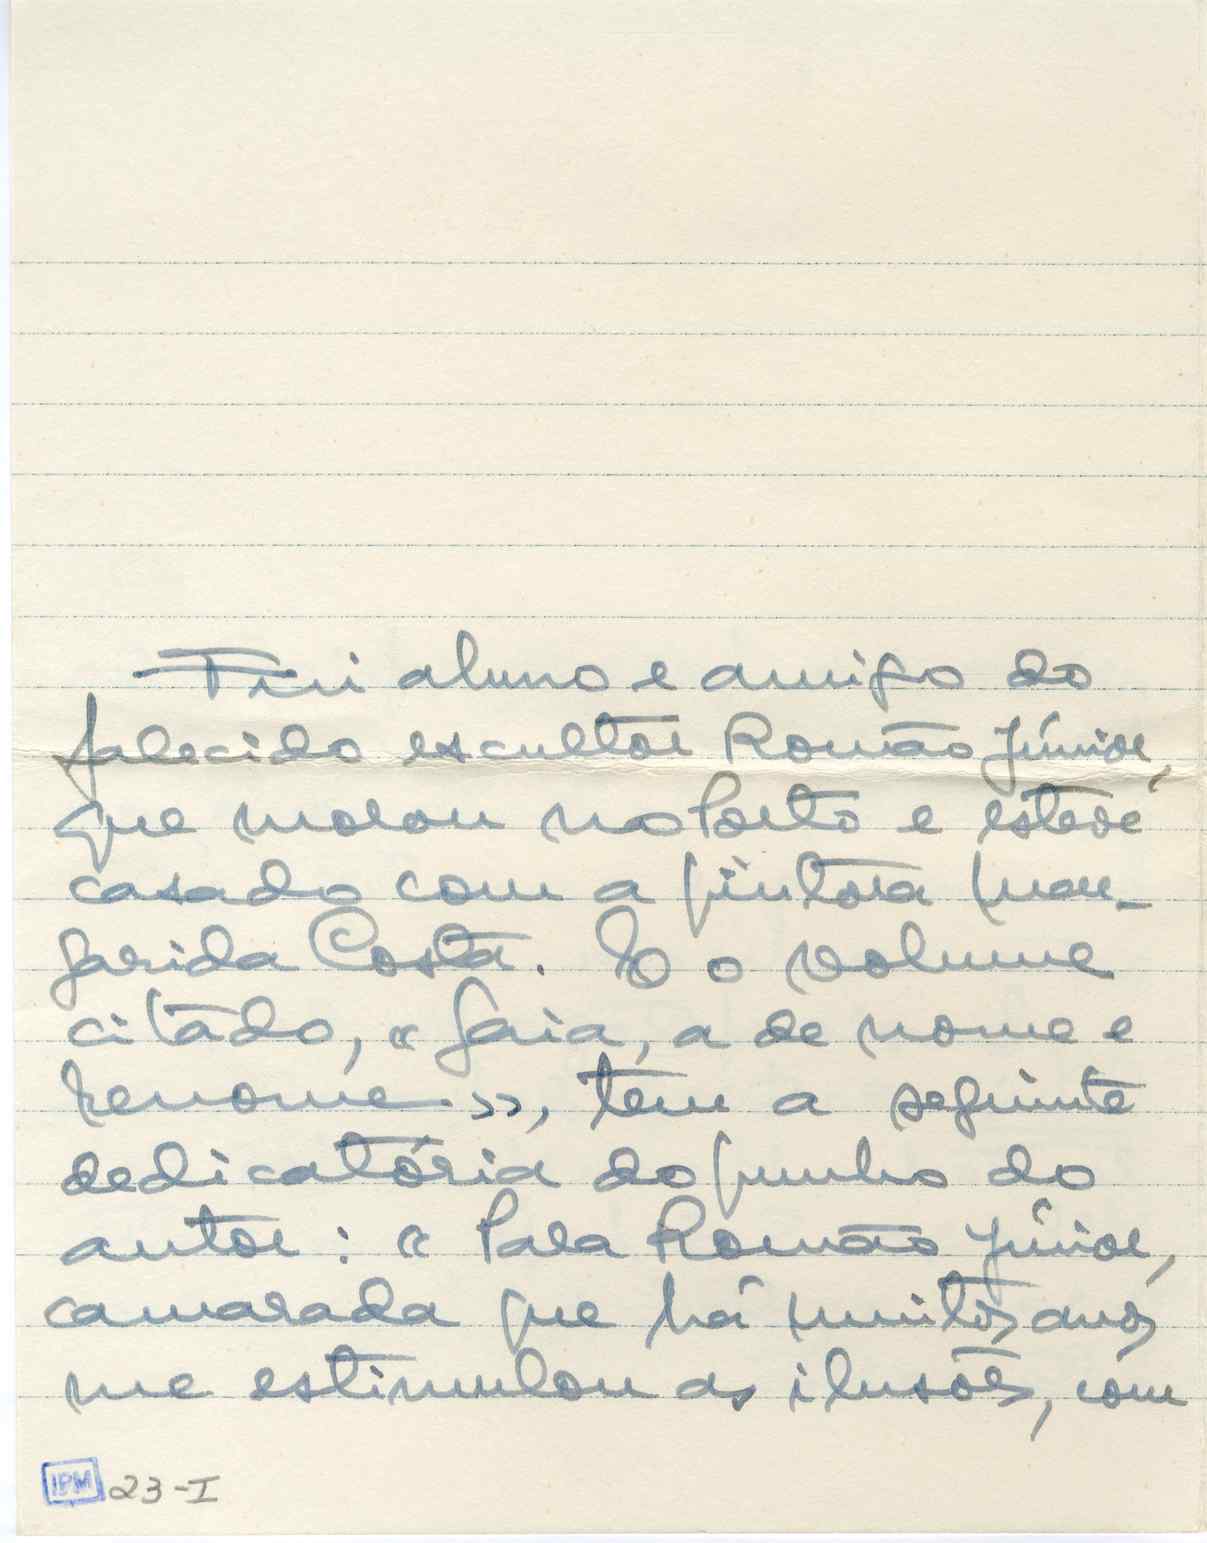 Fui aluno e amigo do
falecido escultor Romão Júnior,
que morou no Porto e esteve
casado com a pintora Mar-
garida Costa. E o volume
citado, «Gaia, a de nome e
renome.», tem a seguinte
dedicatória do punho do
autor: «Para Romão Júnior,
camarada que há muitos anos
me estimulou as ilusões, com
IPM 23-I